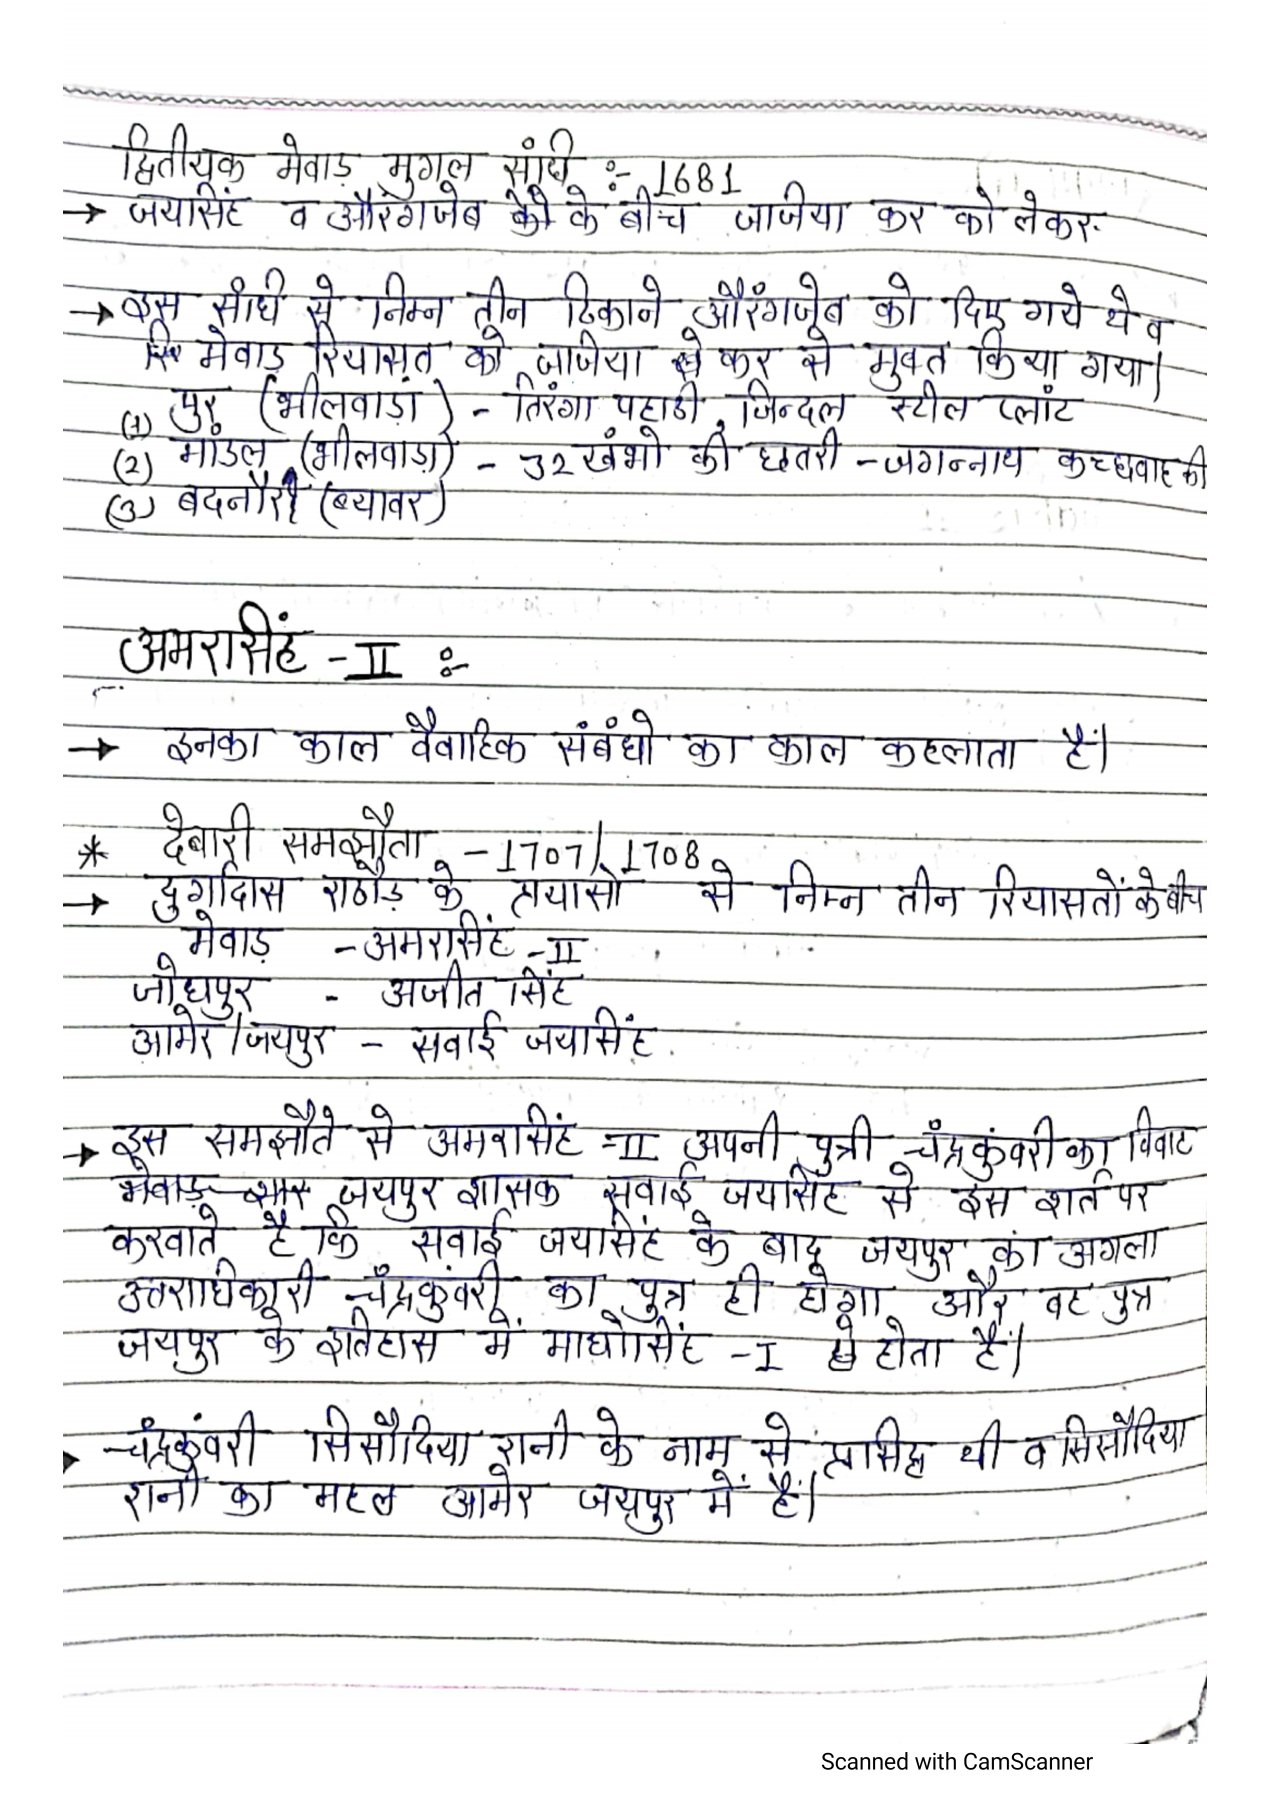 द्वितीयक मेवाड़ मुगल संधि :- 1681
→ जयसिंह व औरंगजेब के बीच जजिया कर को लेकर.
→ इस संधि से निम्न तीन ठिकाने औरंगजेब को दिए गये थे व
मेवाड़ रियासत को जजिया कर से मुक्त किया गया।
(1) पुर (भीलवाड़ा) - तिरंगा पहाडी, जिन्दल स्टील प्लांट
(2) मांडल (भीलवाड़ा) - 32 खंभो की छतरी - जगन्नाथ कच्छवाह की
(3) बदनौर (ब्यावर)
अमरसिंह - II :-
→ इनका काल वैवाहिक संबंधो का काल कहलाता है।
* देबारी समझौता - 1707/1708
→ दुर्गादास राठौड़ के प्रयासो से निम्न तीन रियासतों के बीच
मेवाड़ - अमरसिंह - II
जोधपुर - अजीत सिंह
आमेर/जयपुर - सवाई जयसिंह.
→ इस समझौते से अमरसिंह - II अपनी पुत्री चंद्रकुंवरी का विवाह
जयपुर शासक सवाई जयसिंह से इस शर्त पर
करवाते है कि सवाई जयसिंह के बाद जयपुर का अगला
उत्तराधिकारी चंद्रकुंवरी का पुत्र ही होगा और वह पुत्र
जयपुर के इतिहास में माधोसिंह - I होता है।
→ चंद्रकुंवरी सिसौदिया रानी के नाम से प्रसिद्ध थी व सिसौदिया
रानी का महल आमेर जयपुर में है।
Scanned with CamScanner